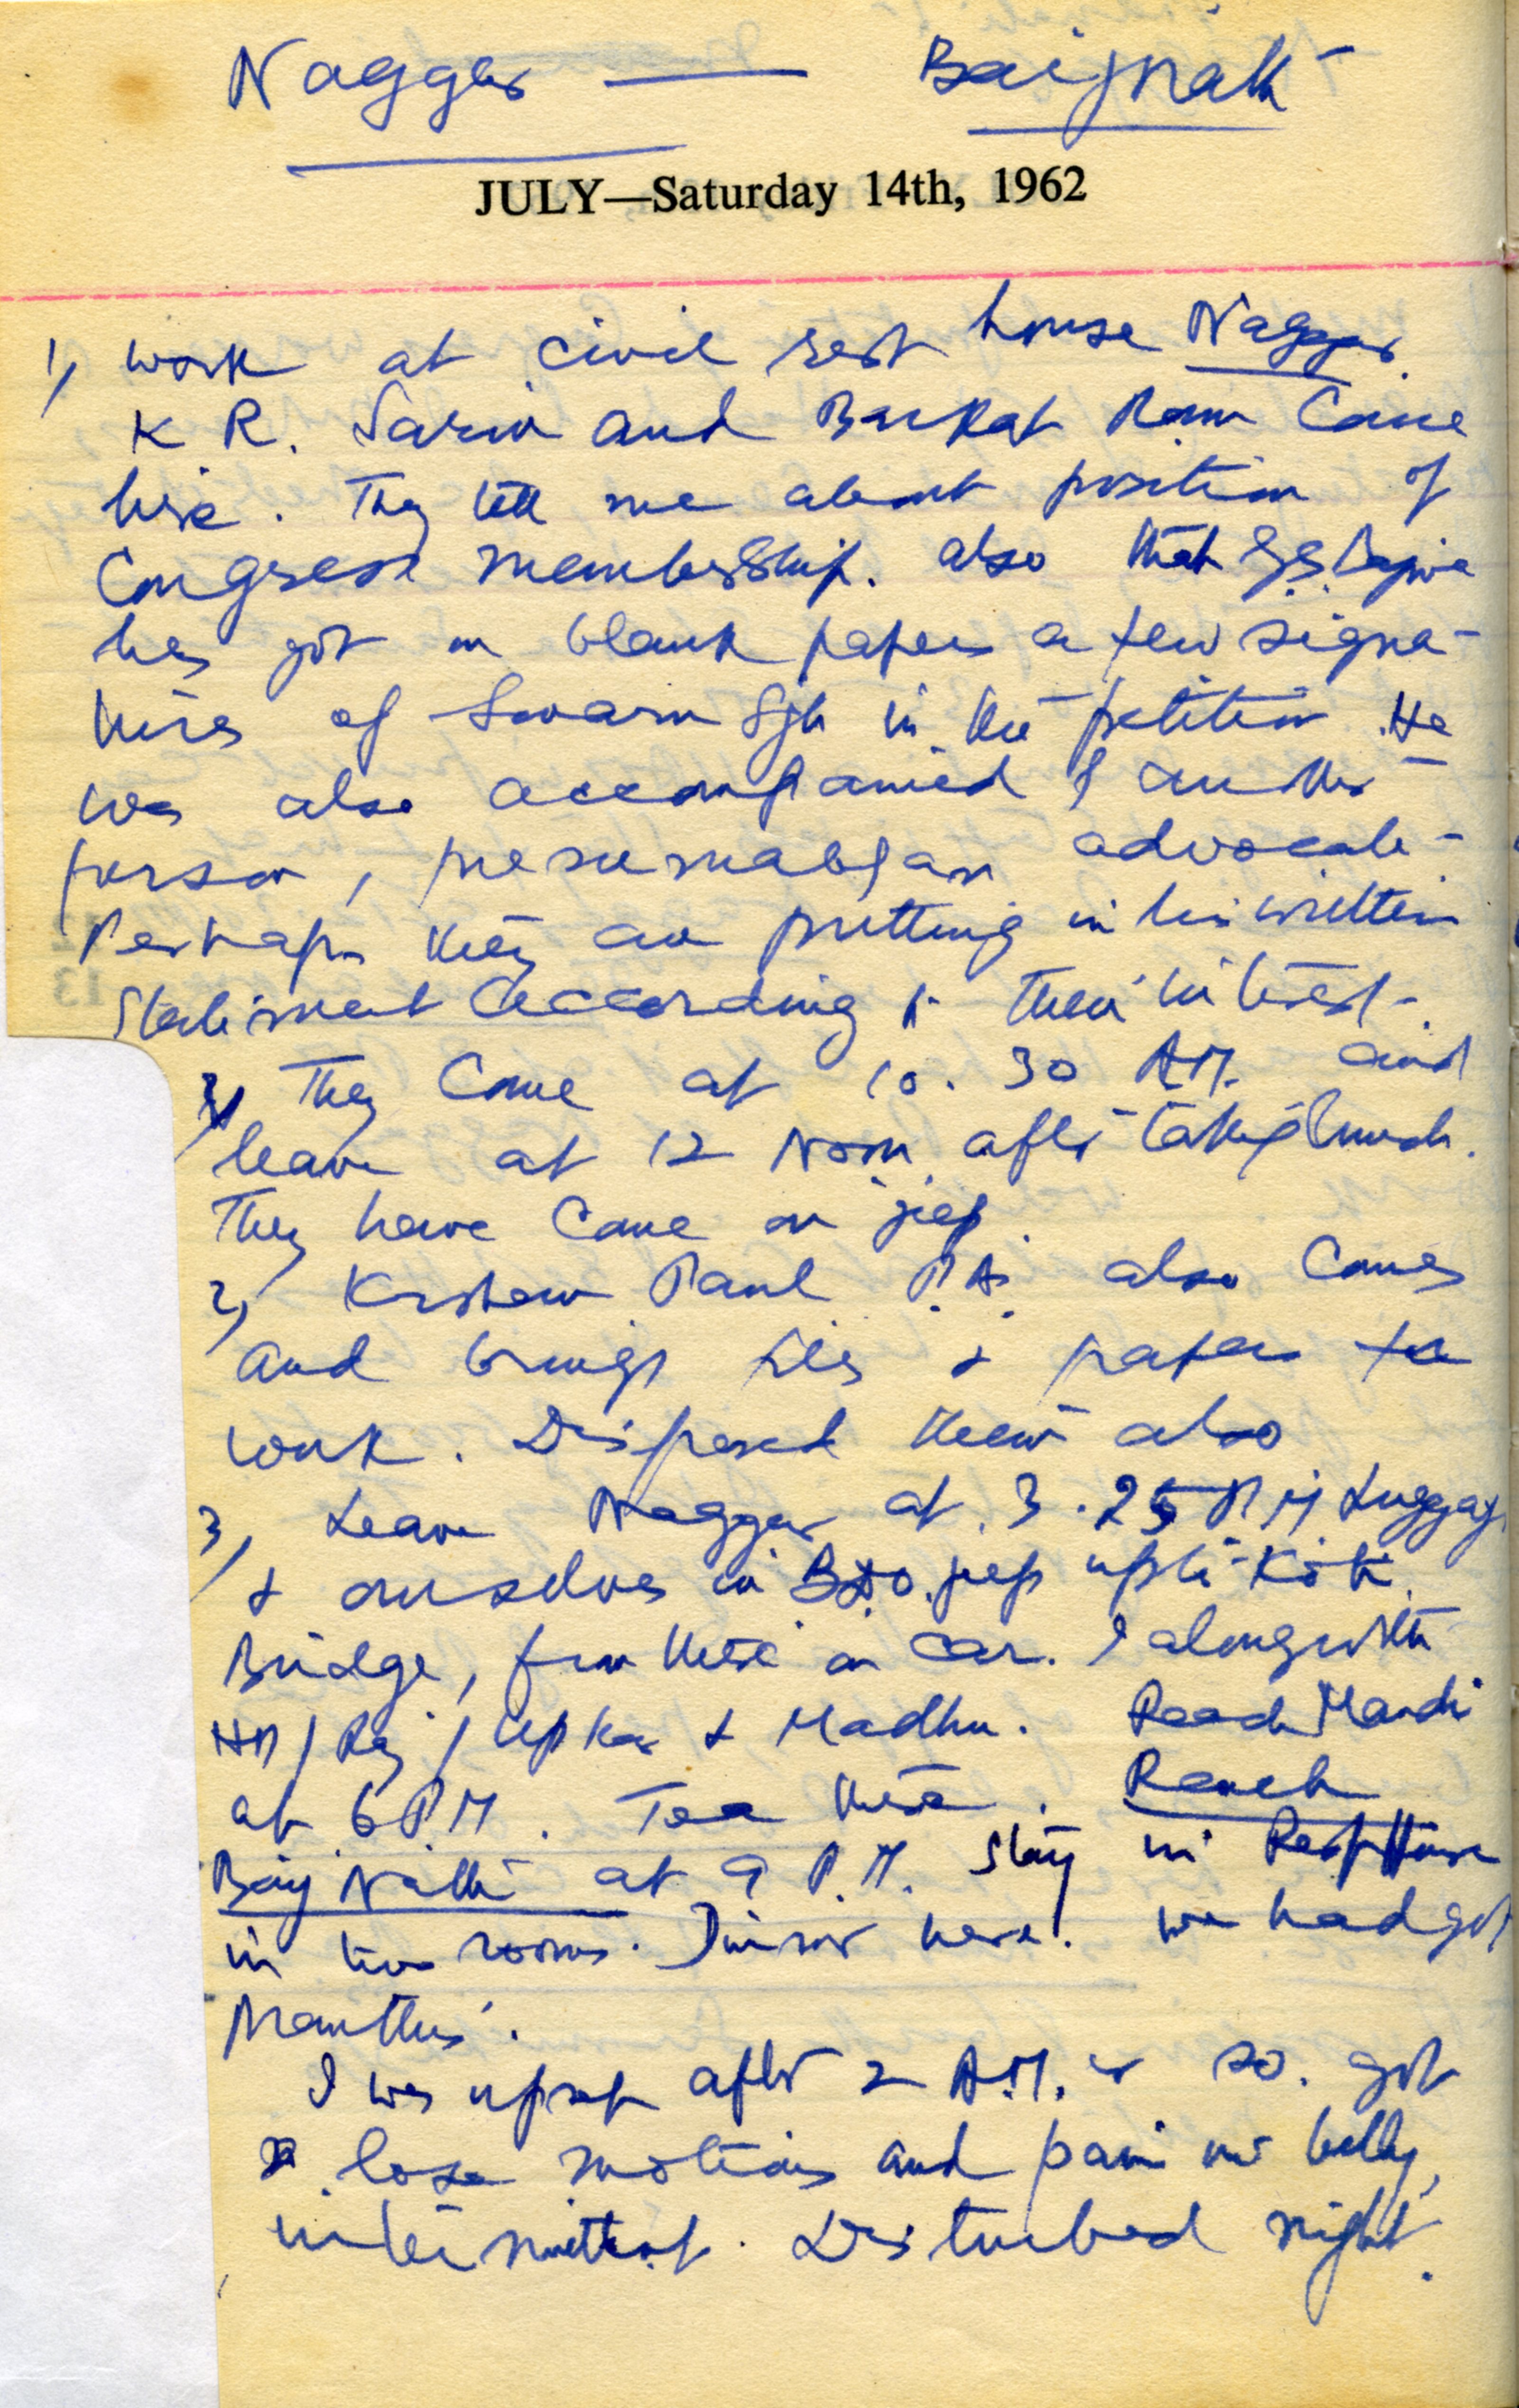 Naggar — Baijnath
JULY—Saturday 14th, 1962
1, work at civil rest house Naggar.
K R. Sarin and Barkat Ram Came
here. They tell me about position of
Congress membership. also that
has got on blank papers a few signa-
tures of Swarn Sgh in the petition. He
was also accompanied by another
person, presumably an advocate -
Perhaps they are putting in his written
Statement according to their interest.
They Come at 10.30 A.M. and
leave at 12 Noon after taking lunch.
They have Come on jeep.
2, Krishan Paul P.A. also Comes
and brings files & papers for
work. Disposed them also
3, Leave Naggar at 3.25 P.M. Luggage
& ourselves in B.D.O. jeep upto Kothi
Bridge, from there in Car. I alongwith
HM / Raj / Upkar & Madhu. Reach Mandi
at 6 P.M. Tea there. Reach
Baij Nath at 9 P.M. Stay in Rest House
in two rooms. Dinner here. we had got

I was upset after 2 A.M. or so. got
lose motions and pain in belly,
intermittent. Disturbed night.